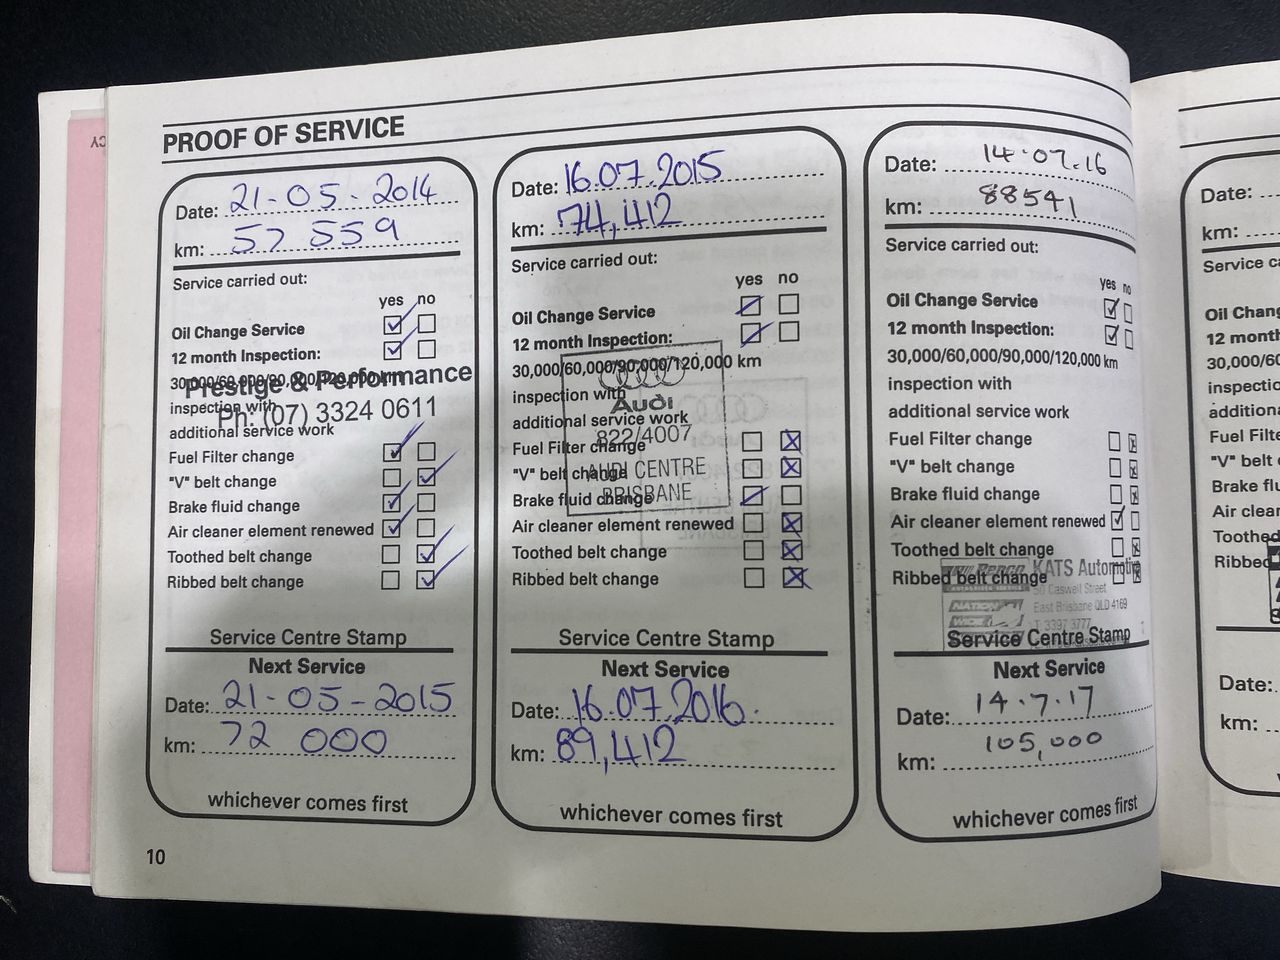 PROOF OF SERVICE
Date: 21-05-2014
km: 57 559
Service carried out:
yes no
Oil Change Service
12 month Inspection:
30,000/60,000/90,000/120,000 km
Prestige & Performance
inspection with
Ph: (07) 3324 0611
additional service work
Fuel Filter change
"V" belt change
Brake fluid change
Air cleaner element renewed
Toothed belt change
Ribbed belt change
Service Centre Stamp
Next Service
Date: 21-05-2015
km: 72 000
whichever comes first
Date: 16.07.2015
km: 74,412
Service carried out:
yes no
Oil Change Service
12 month Inspection:
30,000/60,000/90,000/120,000 km
inspection with
Audi
additional service work
822/4007
Fuel Filter change
"V" belt change
AUDI CENTRE
BRISBANE
Brake fluid change
Air cleaner element renewed
Toothed belt change
Ribbed belt change
Service Centre Stamp
Next Service
Date: 16.07.2016.
km: 89,412
whichever comes first
Date: 14.07.16
km: 88541
Service carried out:
yes no
Oil Change Service
12 month Inspection:
30,000/60,000/90,000/120,000 km
inspection with
additional service work
Fuel Filter change
"V" belt change
Brake fluid change
Air cleaner element renewed
Toothed belt change
Ribbed belt change
KATS Automotive
50 Caswell Street
East Brisbane QLD 4169
T 3397 3777
Service Centre Stamp
Next Service
Date: 14.7.17
km: 105,000
whichever comes first
10
Date:
km:
Service
Oil
12 month
30,000/60
inspectio
additiona
Fuel Filte
"V" belt
Brake flu
Air clean
Toothed
Ribbed
Date:
km: